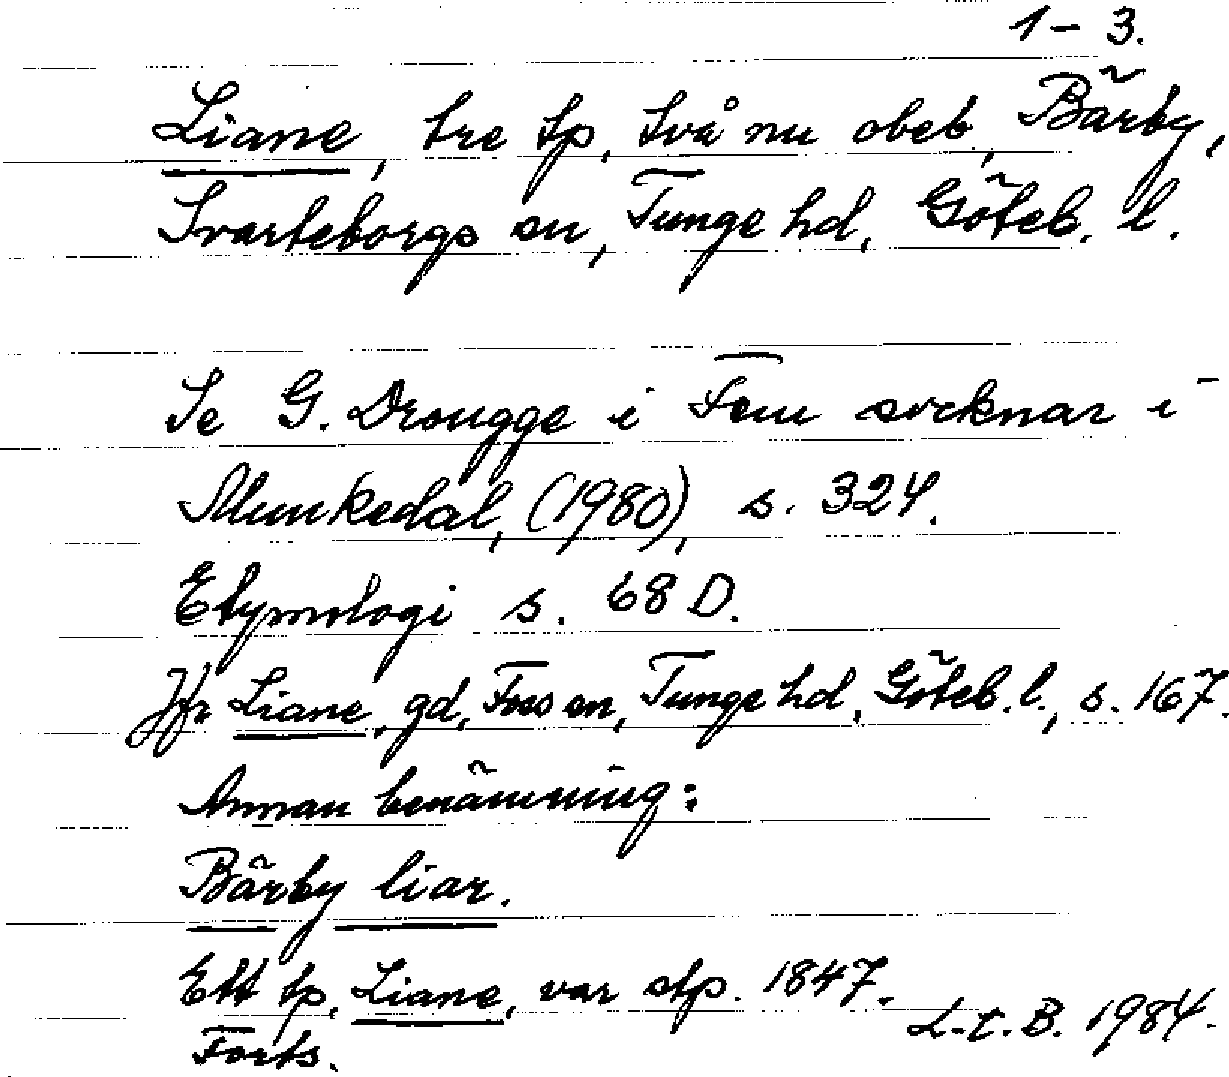 1-3.
Liane, tre tp, två nu obeb, Bärby,
Svarteborgs sn, Tunge hd, Göteb. l.
Se G. Drougge i Fem socknar i
Munkedal, (1980), s. 324.
Etymologi s. 68 D.
Jfr Liane, gd, Foss sn, Tunge hd, Göteb. l., s. 167.
Annan benämning:
Bärby liar.
Ett tp, Liane, var stp. 1847.
L.C.B. 1984.
Forts.